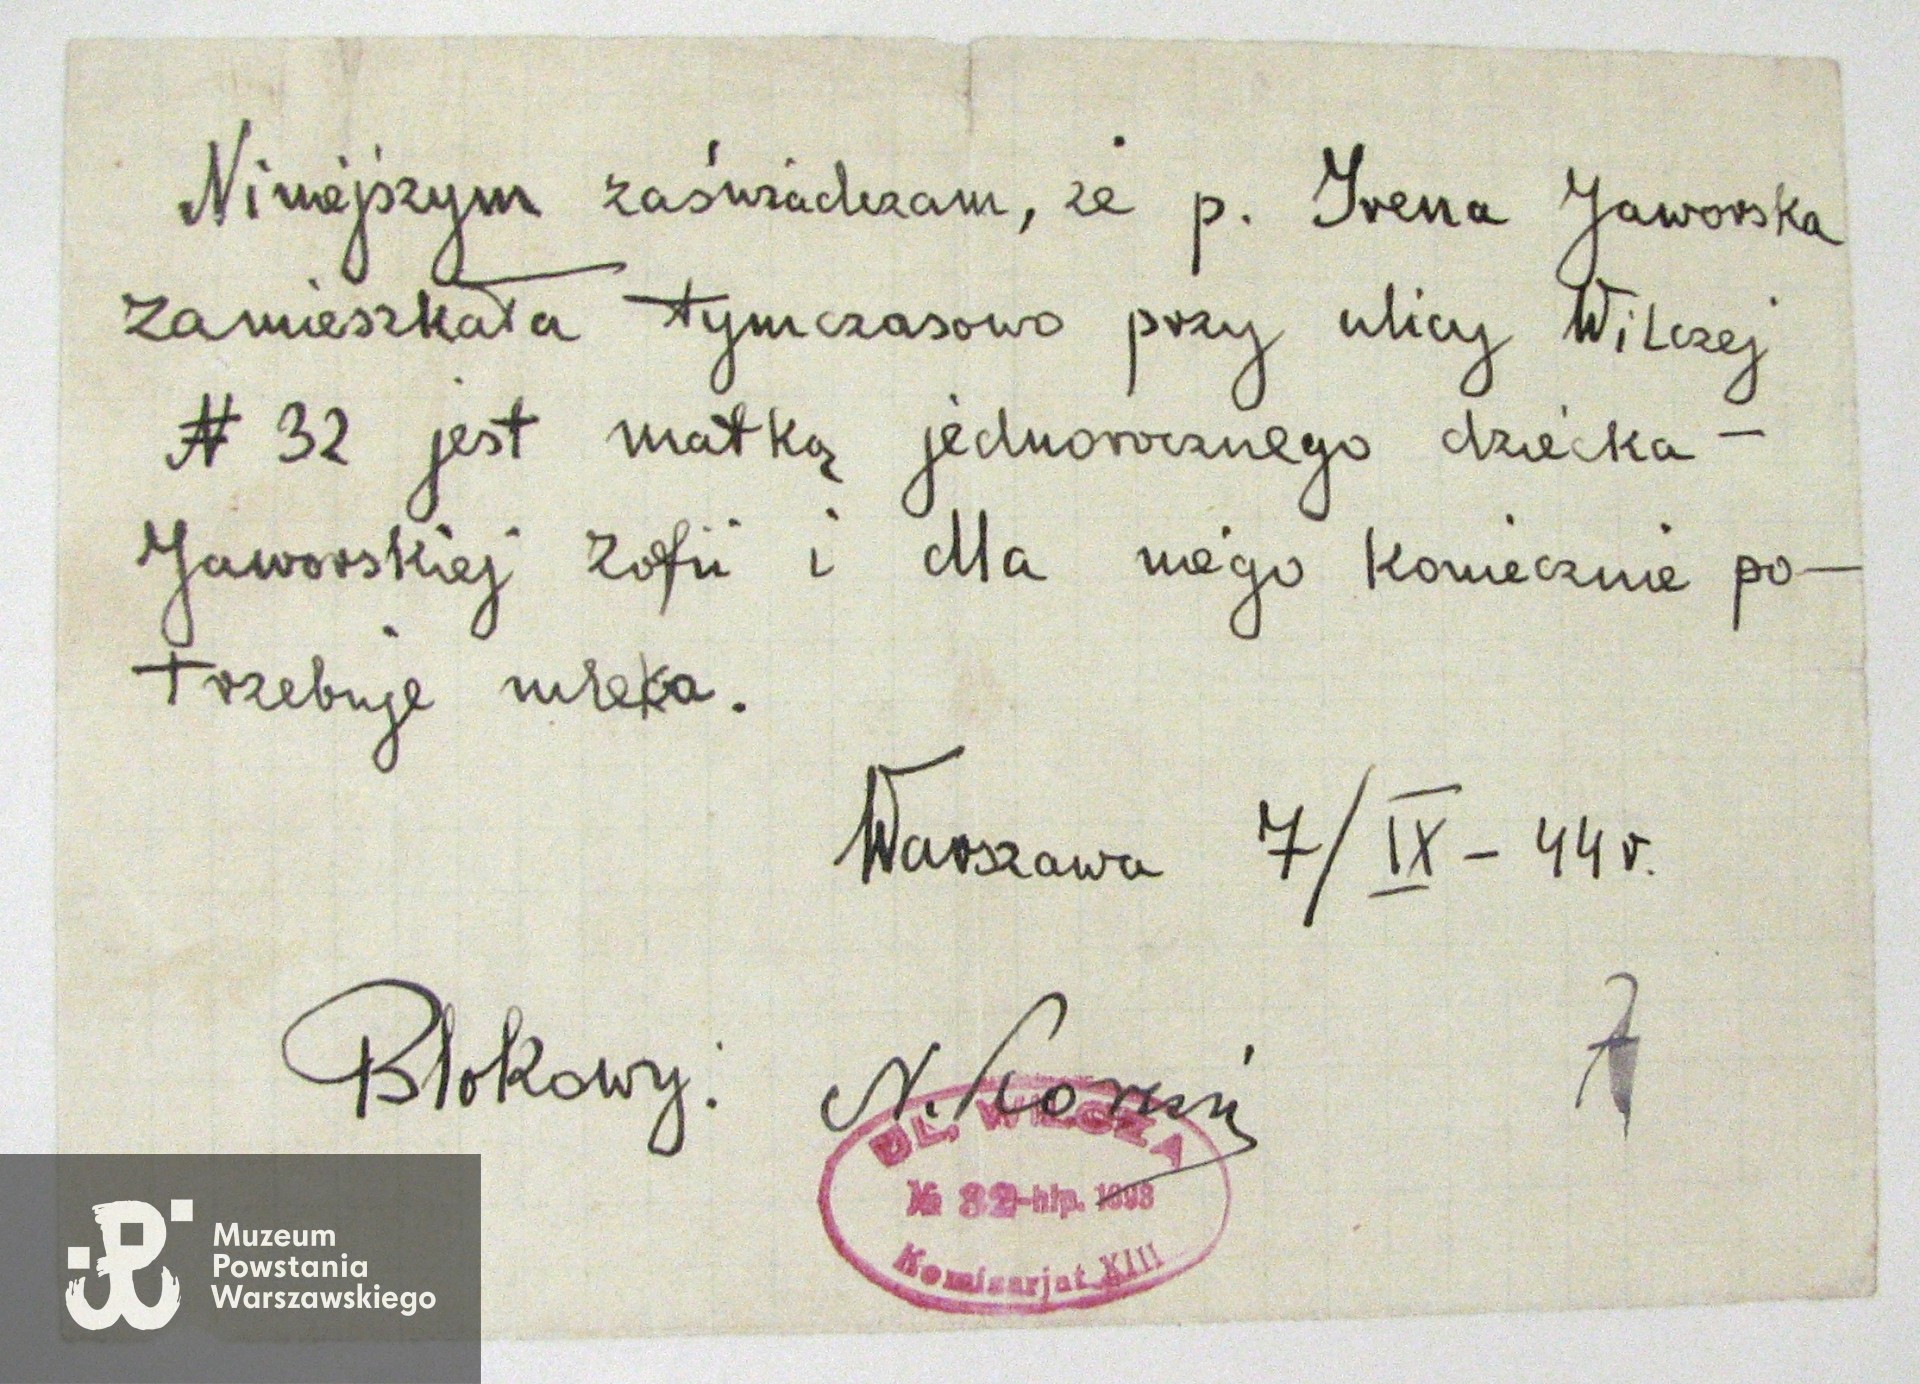 Niniejszym zaświadczam, że p. Irena Jaworska
zamieszkała tymczasowo przy ulicy Wilczej
N 32 jest matką jednorocznego dziecka –
Jaworskiej Zofii i dla niego koniecznie po–
trzebuje mleka.
Warszawa 7/IX – 44 r.
Blokowy: N.
7
UL. WILCZA
№ 32-hip. 1698
Komisarjat XIII
Muzeum
Powstania
Warszawskiego